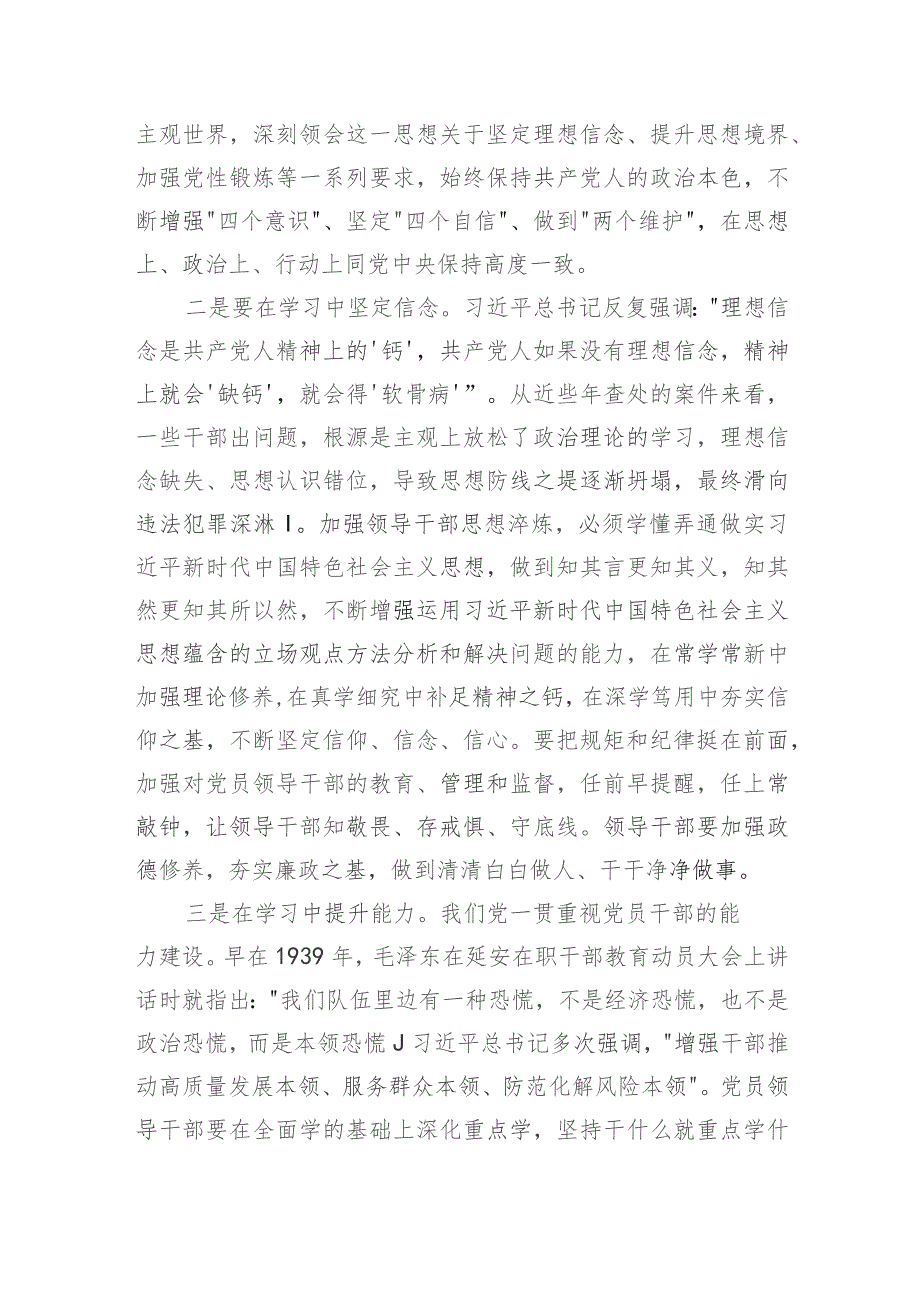 主观世界，深刻领会这一思想关于坚定理想信念、提升思想境界、
加强党性锻炼等一系列要求，始终保持共产党人的政治本色，不
断增强"四个意识"、坚定"四个自信"、做到"两个维护"，在思想
上、政治上、行动上同党中央保持高度一致。
二是要在学习中坚定信念。习近平总书记反复强调："理想信
念是共产党人精神上的'钙'，共产党人如果没有理想信念，精神
上就会'缺钙'，就会得'软骨病'”。从近些年查处的案件来看，
一些干部出问题，根源是主观上放松了政治理论的学习，理想信
念缺失、思想认识错位，导致思想防线之堤逐渐坍塌，最终滑向
违法犯罪深淋I。加强领导干部思想淬炼，必须学懂弄通做实习
近平新时代中国特色社会主义思想，做到知其言更知其义，知其
然更知其所以然，不断增强运用习近平新时代中国特色社会主义
思想蕴含的立场观点方法分析和解决问题的能力，在常学常新中
加强理论修养,在真学细究中补足精神之钙，在深学笃用中夯实信
仰之基，不断坚定信仰、信念、信心。要把规矩和纪律挺在前面，
加强对党员领导干部的教育、管理和监督，任前早提醒，任上常
敲钟，让领导干部知敬畏、存戒惧、守底线。领导干部要加强政
德修养，夯实廉政之基，做到清清白白做人、干干净净做事。
三是在学习中提升能力。我们党一贯重视党员干部的能
力建设。早在1939年，毛泽东在延安在职干部教育动员大会上讲
话时就指出："我们队伍里边有一种恐慌，不是经济恐慌，也不是
政治恐慌，而是本领恐慌J习近平总书记多次强调，"增强干部推
动高质量发展本领、服务群众本领、防范化解风险本领"。党员领
导干部要在全面学的基础上深化重点学，坚持干什么就重点学什